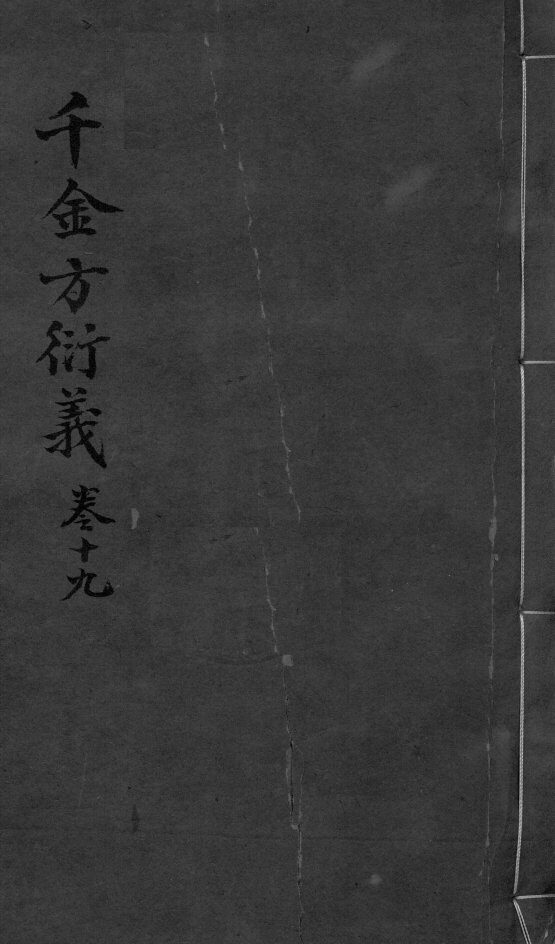 千金方衍義 卷十九